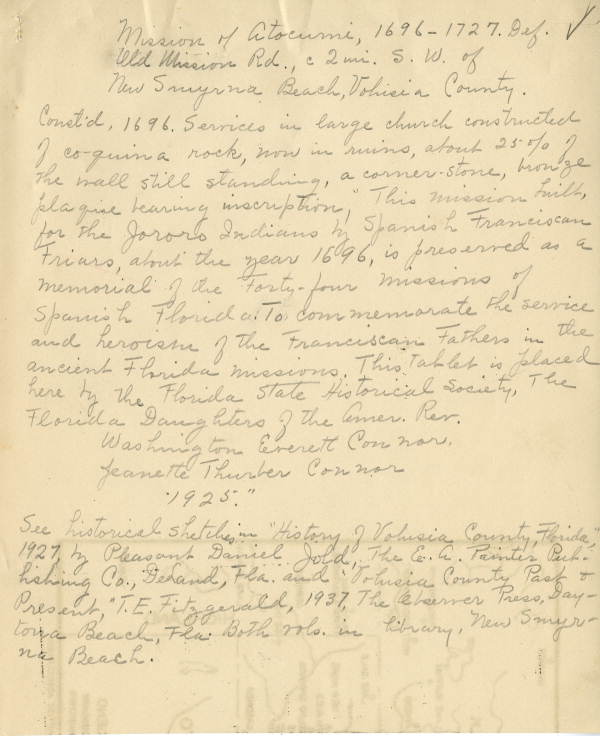 Mission of Atocumi, 1696-1727. Def.
Old Mission Rd., c 2 mi. S. W. of
New Smyrna Beach, Volusia County.
Const'd, 1696. Services in large church constructed
of co-quina rock, now in ruins, about 25% of
the wall still standing, a corner-stone, bronze
plaque bearing inscription, "This mission built,
for the Jororo Indians by Spanish Franciscan
Friars, about the year 1696, is preserved as a
memorial of the Forty-four missions of
Spanish Florida. To commemorate the service
and heroism of the Franciscan Fathers in the
ancient Florida missions. This Tablet is placed
here by the Florida State Historical Society, The
Florida Daughters of the Amer. Rev.
Washington Everett Connor.
Jeanette Thurber Connor
1925."
See historical sketches in "History of Volusia County, Florida",
1927, by Pleasant Daniel Gold, The E. O. Painter Pub-
lishing Co., DeLand, Fla. and "Volusia County Past &
Present," T. E. Fitzgerald, 1937, The Observer Press, Day-
tona Beach, Fla. Both vols. in library, New Smyr-
na Beach.